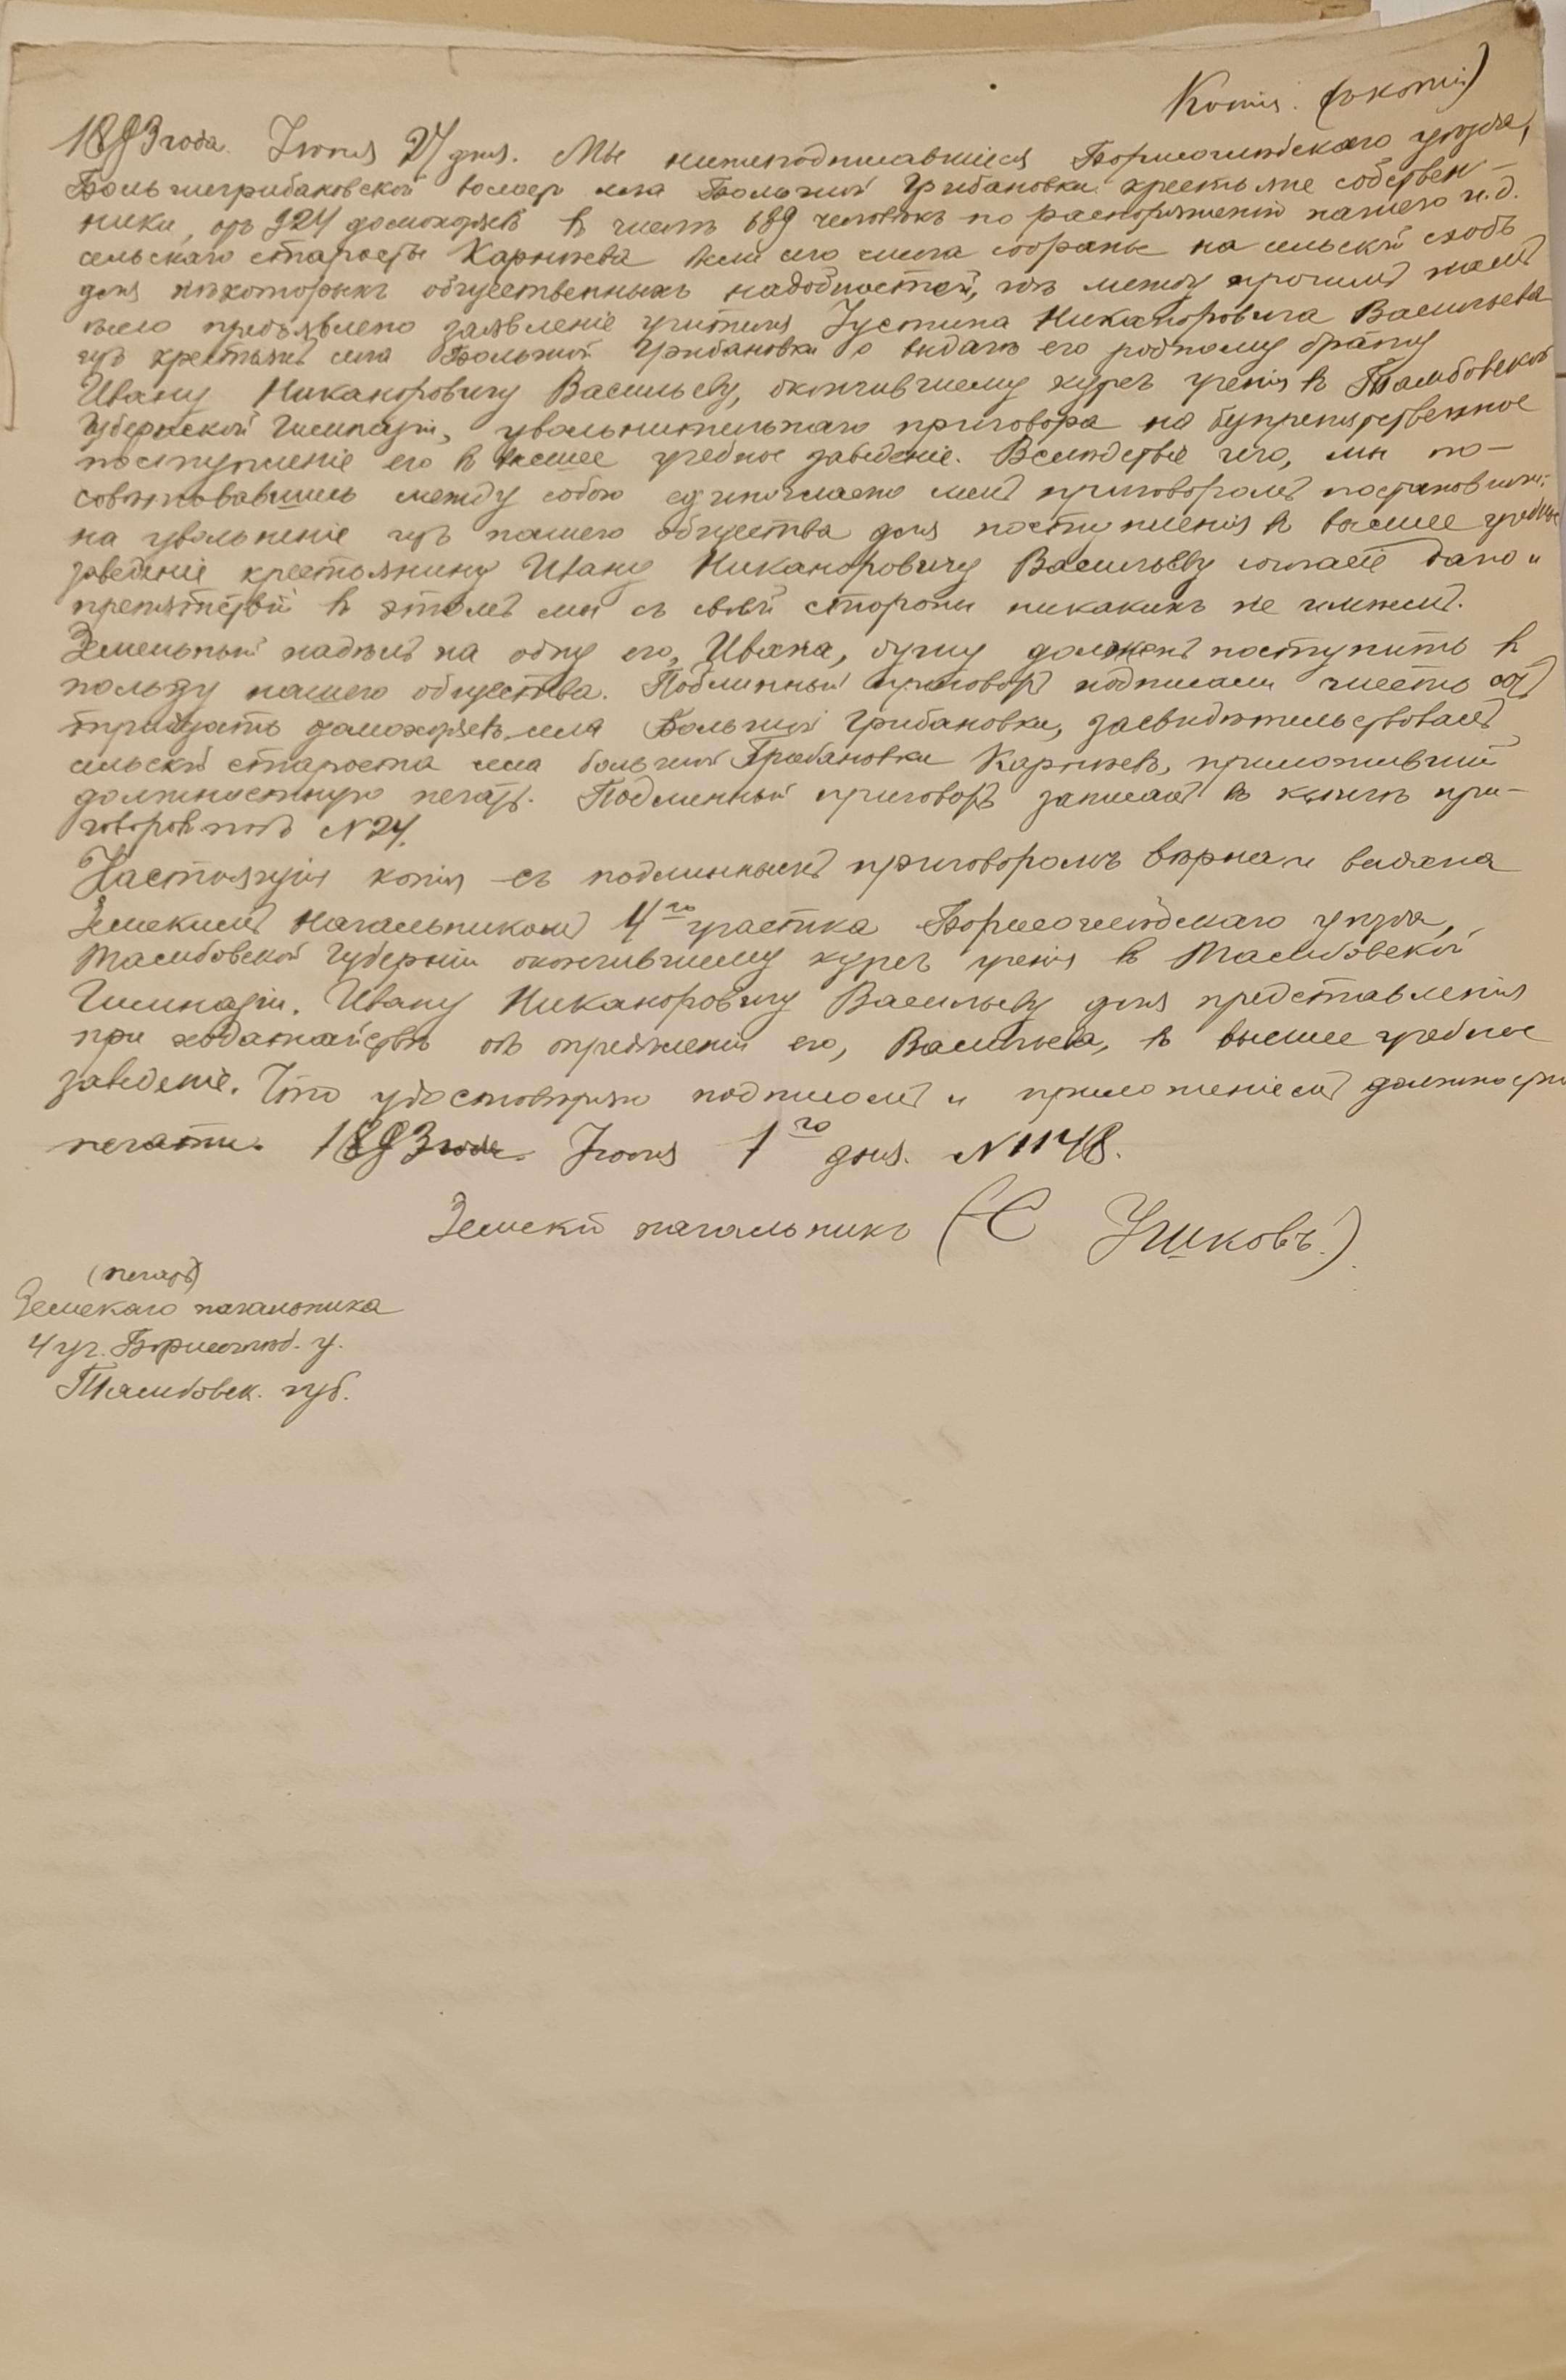 Копія. (съ копіи)
1893 года Іюня 27 дня. Мы нижеподписавшіеся Борисоглѣбскаго уѣзда,
Большегрибановской волости села Большой Грибановки крестьяне собствен-
ники, изъ 924 домохозяевъ въ числѣ 689 человѣкъ по распоряженію нашего и.д.
сельскаго старосты Карпѣева были сего числа собраны на сельскій сходъ
для нѣкоторыхъ общественныхъ надобностей, гдѣ между прочимъ намъ
было предъявлено заявленіе учителя Іустина Никаноровича Васильева
изъ крестьянъ села Большой Грибановки о выдачѣ его родному брату
Ивану Никаноровичу Васильеву, окончившему курсъ ученія въ Тамбовской
Губернской Гимназіи, увольнительнаго приговора на безпрепятственное
поступленіе его въ высшее учебное заведеніе. Вслѣдствіе чего, мы по-
совѣтовавшись между собою единогласно симъ приговоромъ постановили:
на увольненіе изъ нашего общества для поступленія въ высшее учебное
заведеніе крестьянину Ивану Никаноровичу Васильеву согласіе дано и
препятствій въ этомъ мы съ своей стороны никакихъ не имѣемъ.
Земельный надѣлъ на одну его, Ивана, душу долженъ поступить въ
пользу нашего общества. Подлинный приговоръ подписали шестьсотъ
тридцать домохозяевъ села Большой Грибановки, засвидѣтельствовалъ
сельскій староста села Большой Грибановки Карпѣевъ, приложившій
должностную печать. Подлинный приговоръ записанъ въ книгѣ при-
говоровъ подъ N 24.
Настоящая копія съ подлиннымъ приговоромъ вѣрна и выдана
Земскимъ Начальникомъ 4го участка Борисоглѣбскаго уѣзда,
Тамбовской Губерніи окончившему курсъ ученія въ Тамбовской
Гимназіи, Ивану Никаноровичу Васильеву для представленія
при ходатайствѣ объ опредѣленіи его, Васильева, въ высшее учебное
заведеніе. Что удостовѣряю подписомъ и приложеніемъ должностн
печати. 1893 года Іюля 1го дня. N 1148.
Земскій начальникъ (С Ушковъ.)
(печать)
Земскаго начальника
4 уч. Борисоглѣб. у.
Тамбовск. губ.